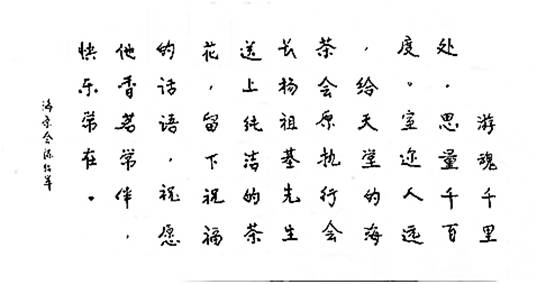 游魂千里
处，思量千百
度。室迩人远
，给天堂的海
茶会原执行会
长杨祖基先生
送上纯洁的茶
花，留下祝福
的话语，祝愿
他香茗常伴，
快乐常在。
海茶会陈